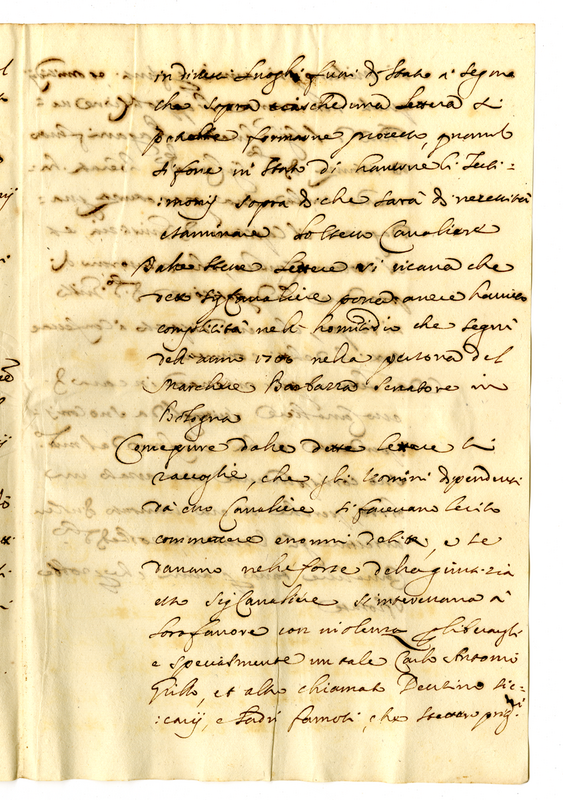 in diversi luoghi fuori di Stato a segno
che sopra ciascheduna lettera si
potrebbe formarne processo, quando
si fosse in stato di haverne li Testi=
=monij sopra di che sarà di necessità
esaminare lo stesso Cavaliere
Dalle stesse lettere si ricava che
detto Sig.r Cavaliere possa avere havuto
complicità nell'homicidio che seguì
dell'anno 1706 nella persona del
Marchese Barbazza Senatore in
Bologna
Come pure dalle dette lettere si
raccoglie, che gli huomini dipendenti
da esso Cavaliere si facevano lecito
commettere enormi delitti, e se
davano nelle forze della giustizia
esso Sig.r Cavaliere s'interessava a
loro favore con violenza per liberargli
e specialmente un tale Carlo Antonio
Grillo, et altro chiamato Dentino sic=
=carij, e ladri famosi, che stettero prig.ni